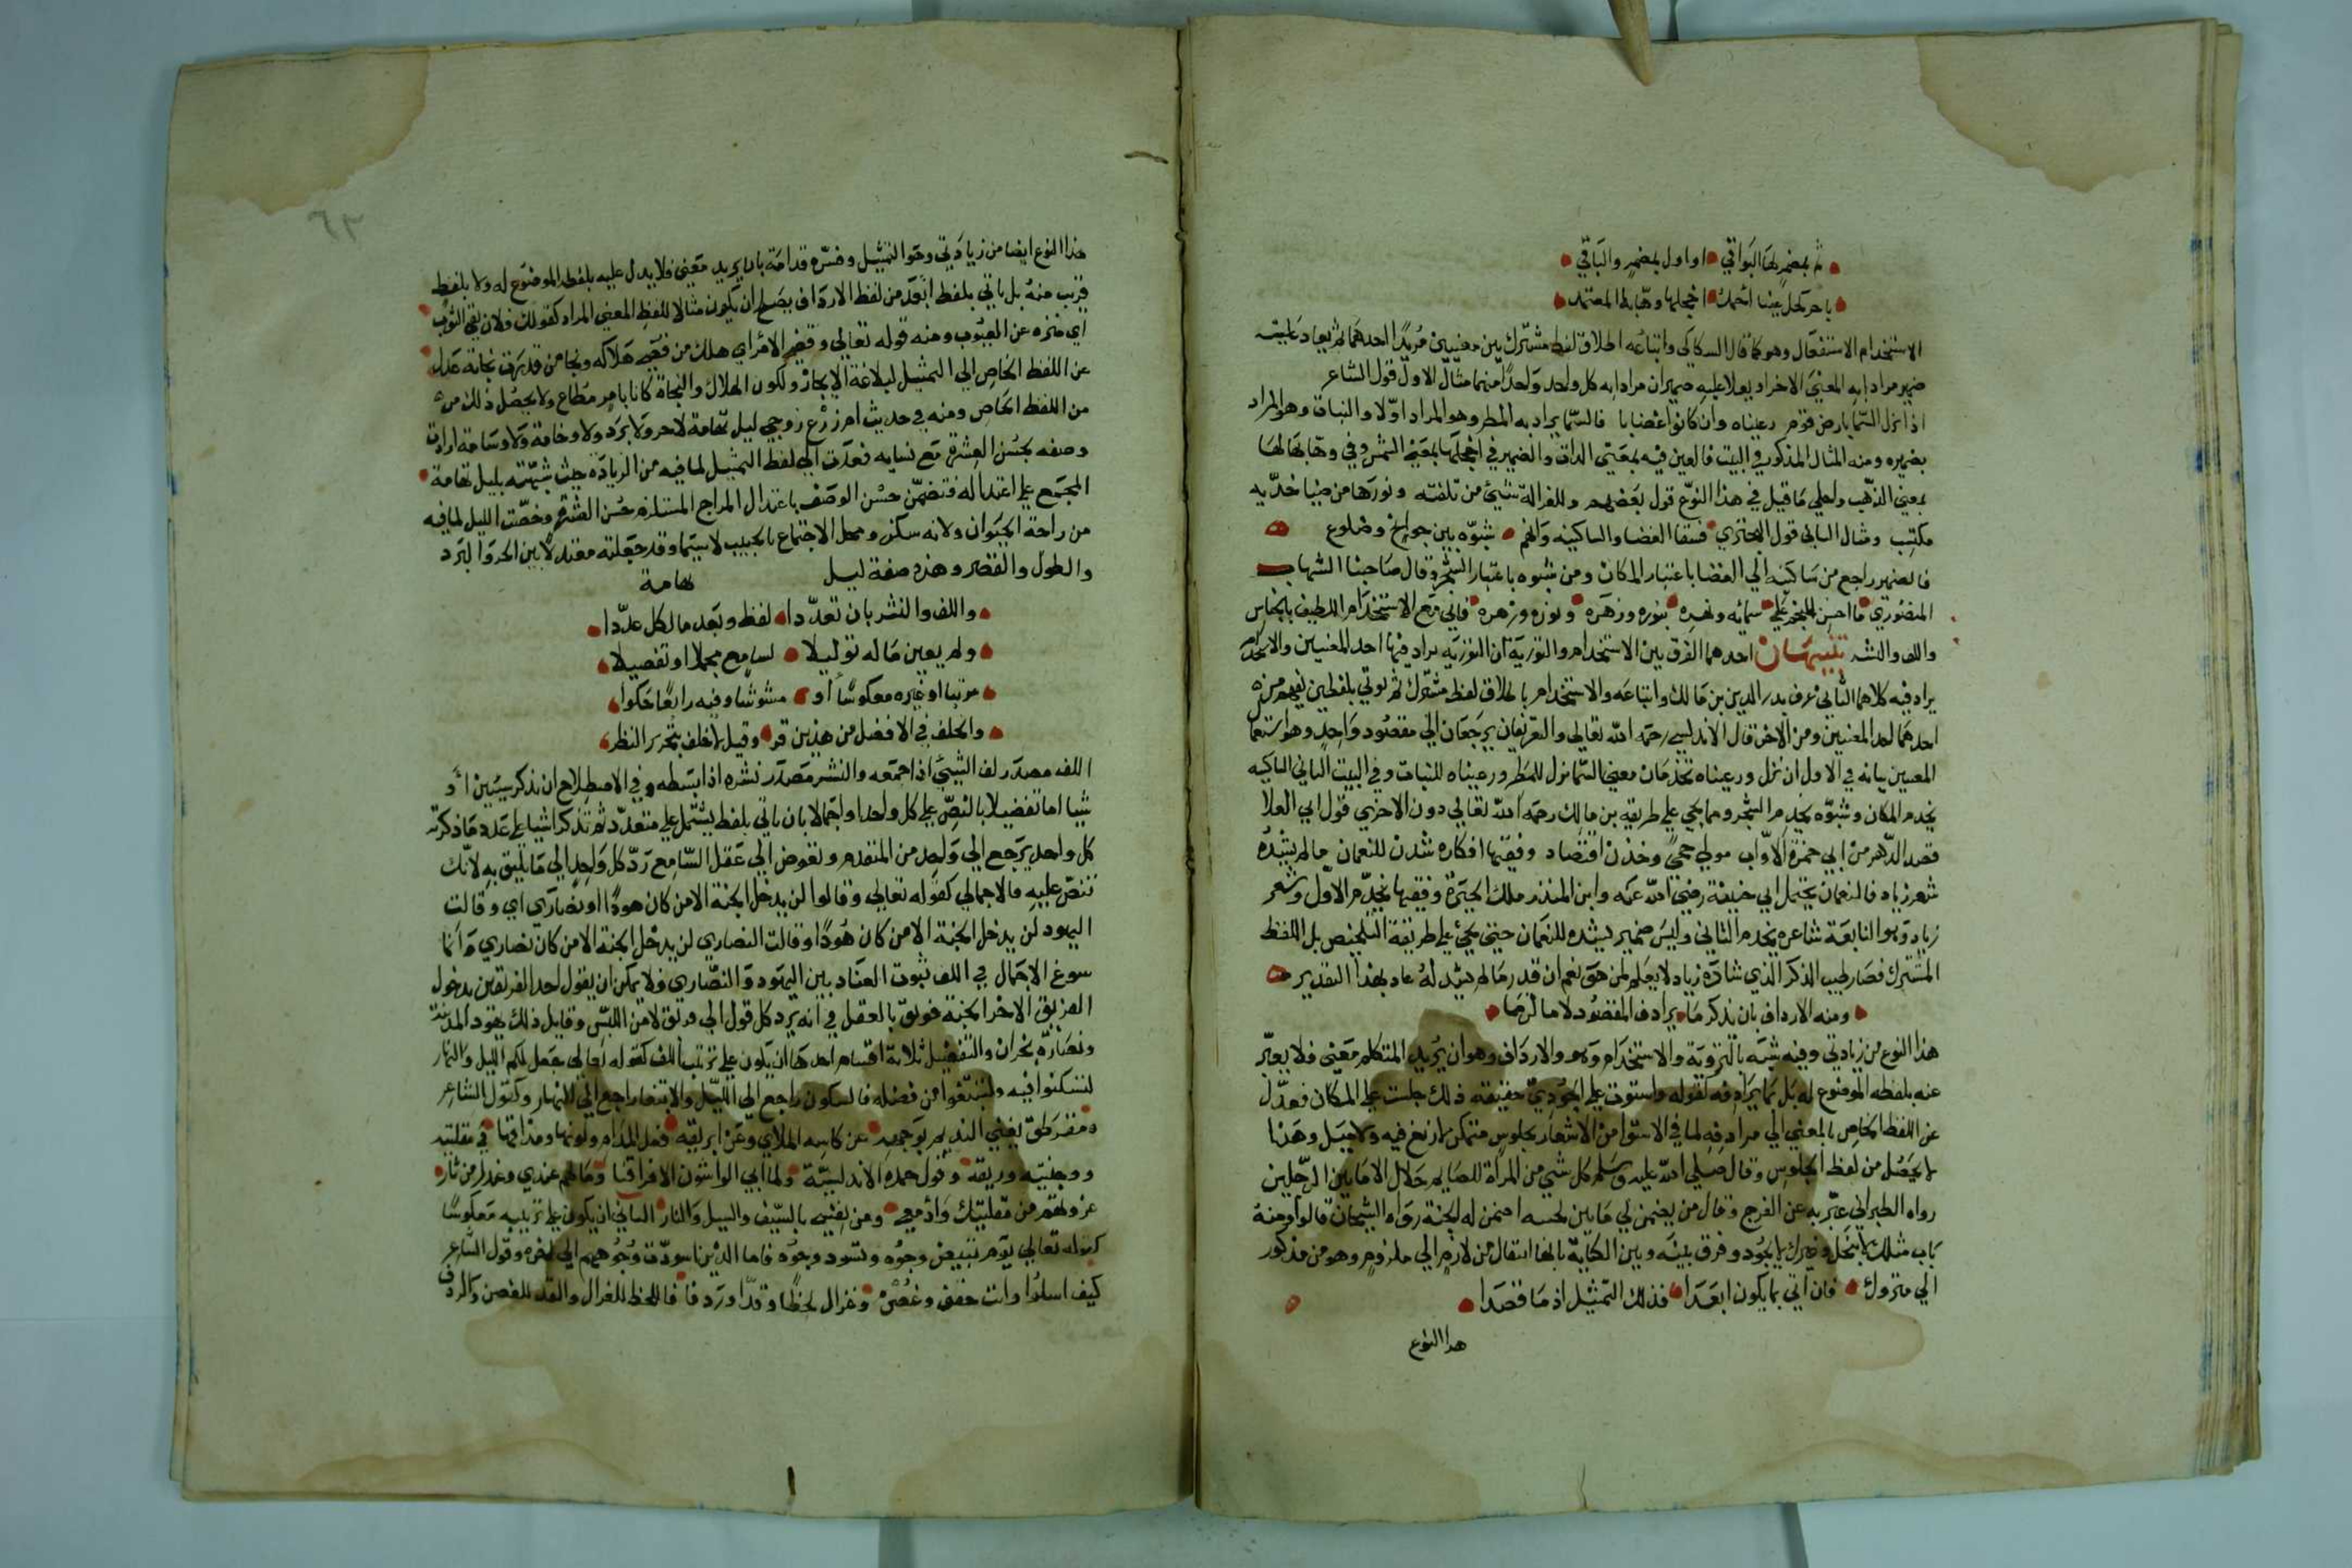 ثم بمضمر لها البواقي اواول بمضمر والباقي
الاستخدام الاستفعال وهو كما قال السكاكي واتباعه اطلاق لفظ مشترك بين معنيين مريدا احدهما ثم يعاد عليه
ضمير مرادا به المعني الاخر او يعاد عليه ضميران مراد به كل واحد واحدا منهما مثال الاول قول الشاعر
اذا نزل السما بارض قوم رعيناه وان كانوا غضابا فالسما يراد به المطر وهو المراد اولا والنبات وهو المراد
بضميره ومنه المثال المذكور في البيت فالعين فيه بمعني الذات والضمير في اجعلها بمعني الشمس وفي وهابها لها
بمعني الذهب واحلي ما قيل في هذا النوع قول بعضهم وللغزالة شيئ من تلفته ونورها من ضيا خديه
مكتسب ومثال الثاني قول البحتري فسقا الغضا والساكنيه وانهم شبوه بين جوانح وضلوع
فالضمير راجع من ساكنيه الي الغضا باعتبار المكان ومن شبوه باعتبار الشجر وقال صاحبنا الشهاب
المنصوري ما احسن للنجم علي سمائه ونهره بنوره وزهره ونوره وزهره فاتي مع الاستخدام اللطيف بالجناس
واللف والنشر تنبيهان احدهما الفرق بين الاستخدام والتورية ان التورية يراد فيها احد المعنيين والاستخدام
يراد فيه كلاهما الثاني عرف بدر الدين بن مالك واتباعه والاستخدام باطلاق لفظ مشترك ثم يوتي بلفظين يفهم من
احدهما احد المعنيين ومن الاخر قال الاندلسي رحمه الله تعالي والتعريفان يرجعان الي مقصود واحد وهو استعمال
المعنيين بيانه في الاول ان نزل ورعيناه تخدمان معني السما نزل للمطر ورعيناه للنبات وفي البيت الثاني الساكنيه
يخدم المكان وشبوه يخدم الشجر ومما يجي علي طريقه بن مالك رحمه الله تعالي دون الاخري قول ابي العلا
قصد الدهر من ابي حمزة الاواب مولي حجي وخدن اقتصاد وفقيها افكاره شدن للنعمان ما لم يشده
شعر زياد فالنعمان يحتمل ابي حنيفة رضي الله عنه وابن المنذر ملك الحيرة وفقيها يخدم الاول وشعر
زياد وهو النابغة شاعره يخدم الثاني وليس ضمير يشده للنعمان حتي يجئ علي طريقة التلخيص بل اللفظ
المشترك
ومنه الارداف بان تذكر ما يرادف المقصود لا ما لزما
هذا النوع من زيادتي وفيه شبه بالتورية والاستخدام وهو والارداف وهو ان يريد المتكلم معني فلا يعبر
عنه بلفظه الموضوع له بل بما يرادفه لقوله واستوت علي الجودي حقيقة ذلك جلست علي المكان فعدل
عن اللفظ الخاص بالمعني الي مرادفه لما في الاستوا من الاشعار بجلوس متمكن لا زيغ فيه ولا ميل وهذا
لا يحصل من لفظ الجلوس وقال صلي الله عليه وسلم كل شي من المراة للصايم حلال الا ما بين الرجلين
رواه الطبراني عبر به عن الفرج وقال من يضمن لي ما بين لحييه اضمن له الجنة رواه الشيخان قالوا ومنه
باب مثلك لا يبخل وغيرك لا يجود وفرق بينه وبين الكناية بانها انتقال من لازم الي ملزوم وهو من مذكور
الي متروك فان اتي بما يكون ابعدا فذلك التمثيل اذ ما قصدا
هذا النوع
هذا النوع ايضا من زيادتي وهو التمثيل وفسره قدامة بان يريد معني فلا يدل عليه بلفظه الموضوع له ولا بلفظ
قريب منه بل ياتي بلفظ ابعد من لفظ الارداف يصلح ان يكون مثالا للفظ المعني المراد كقولك فلان نقي الثوب
اي منزه عن العيوب ومنه قوله تعالي وقضي الامر اي هلك من قضي هلاكه ونجا من قدرت نجاته عدل
عن اللفظ الخاص الي التمثيل لبلاغة الايجاز ولكون الهلاك والنجاة كانا بامر مطاع ولا يحصل ذلك من
من اللفظ الخاص ومنه في حديث ام زرع زوجي ليل تهامة لا حر ولا برد ولا وخامة ولا وسامة ارادت
وصفه بحسن العشرة مع نسايه فعدت الي لفظ التمثيل لما فيه من الزيادة حيث شبهته بليل تهامة
المجمع علي اعتداله فتضمن حسن الوصف باعتدال المزاج المستلزم حسن العشرة وخصت الليل لما فيه
من راحة الحيوان ولانه سكن ومحل الاجتماع بالحبيب لاسيما وقد جعلته معتدلا بين الحر والبرد
والطول والقصر وهذه صفة ليل تهامة
واللف والنشر بان تعددا لفظ وبعد ما لكل عددا
ولم يعين ما له توليلا لسامع مجملا او تفصيلا
مرتبا او غيره معكوسا او مشوشا وفيه رابعا حكوا
والخلف في الافضل من هذين قر وقيل لا خلف بتحرير النظر
اللف مصدر لف الشيئ اذا جمعه والنشر مصدر نشره اذا بسطه وفي الاصطلاح ان تذكر شيئين او
شيا اما تفصيلا بالنص علي كل واحد او اجمالا بان ياتي بلفظ يشتمل علي متعدد ثم تذكر اشيا علي عدد ما ذكرته
كل واحد يرجع الي واحد من المتقدم وتفوض الي عقل السامع رد كل واحد الي ما يليق به لا انك
تنص عليه فالاجمالي كقوله تعالي وقالوا لن يدخل الجنة الا من كان هودا او نصاري اي وقالت
اليهود لن يدخل الجنة الا من كان هودا وقالت النصاري لن يدخل الجنة الا من كان نصاري وانما
سوغ الاجمال في اللف ثبوت العناد بين اليهود والنصاري فلا يمكن ان يقول احد الفريقين بدخول
الفريق الاخر الجنة فوثق بالعقل في انه يرد كل قول الي فريق لامن اللبس وقايل ذلك يهود المدينة
ونصاري نجران والتفصيل ثلاثة اقسام احدها ان يكون علي ترتيب اللف كقوله تعالي جعل لكم الليل والنهار
لتسكنوا فيه ولتبتغوا من فضله فالسكون راجع الي الليل والابتغا راجع الي النهار وكقول الشاعر
ومقرطق يغني النديم بوجهه عن كاسه الملاي وعن ابريقه فعل المدام ولونها ومذاقها في مقلتيه
ووجنتيه وريقه وقول حمده الاندلسية ولما ابي الواشون الا فراقنا وما لهم عندي وعندك من ثار
غزوتهم من مقلتيك وادمعي ومن نفسي بالسيف والسيل والنار الثاني ان يكون علي ترتيبه معكوسا
كقوله تعالي يوم تبيض وجوه وتسود وجوه فاما الذين اسودت وجوههم الي اخره وقول الشاعر
كيف اسلوا وانت حقف وغصن وغزال لحظا وقدا وردفا فاللحظ للغزال والقد للغصن والردف